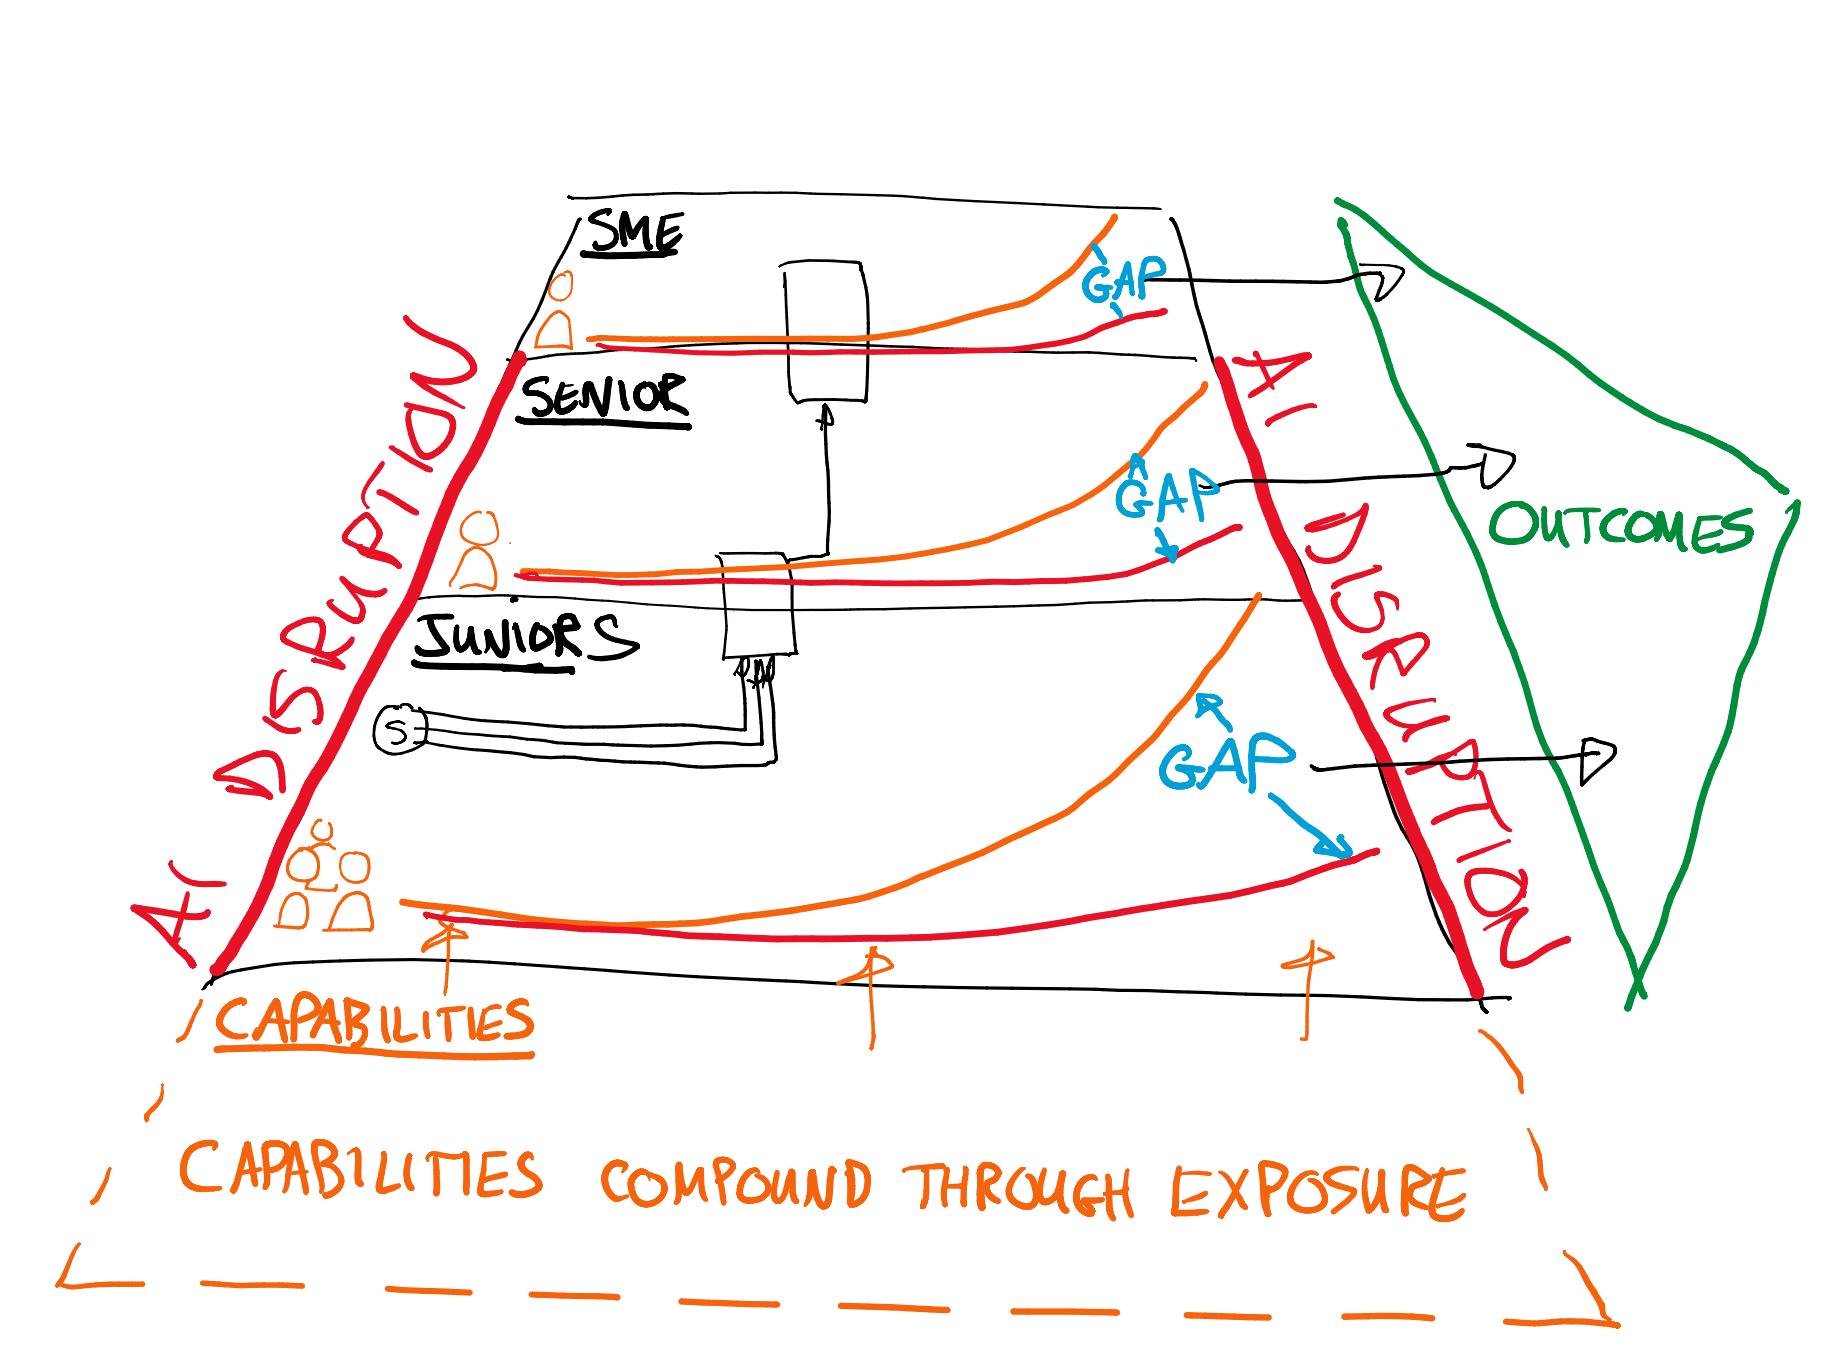 SME
GAP
SENIOR
GAP
OUTCOMES
JUNIORS
S
GAP
AI DISRUPTION
AI DISRUPTION
CAPABILITIES
CAPABILITIES COMPOUND THROUGH EXPOSURE